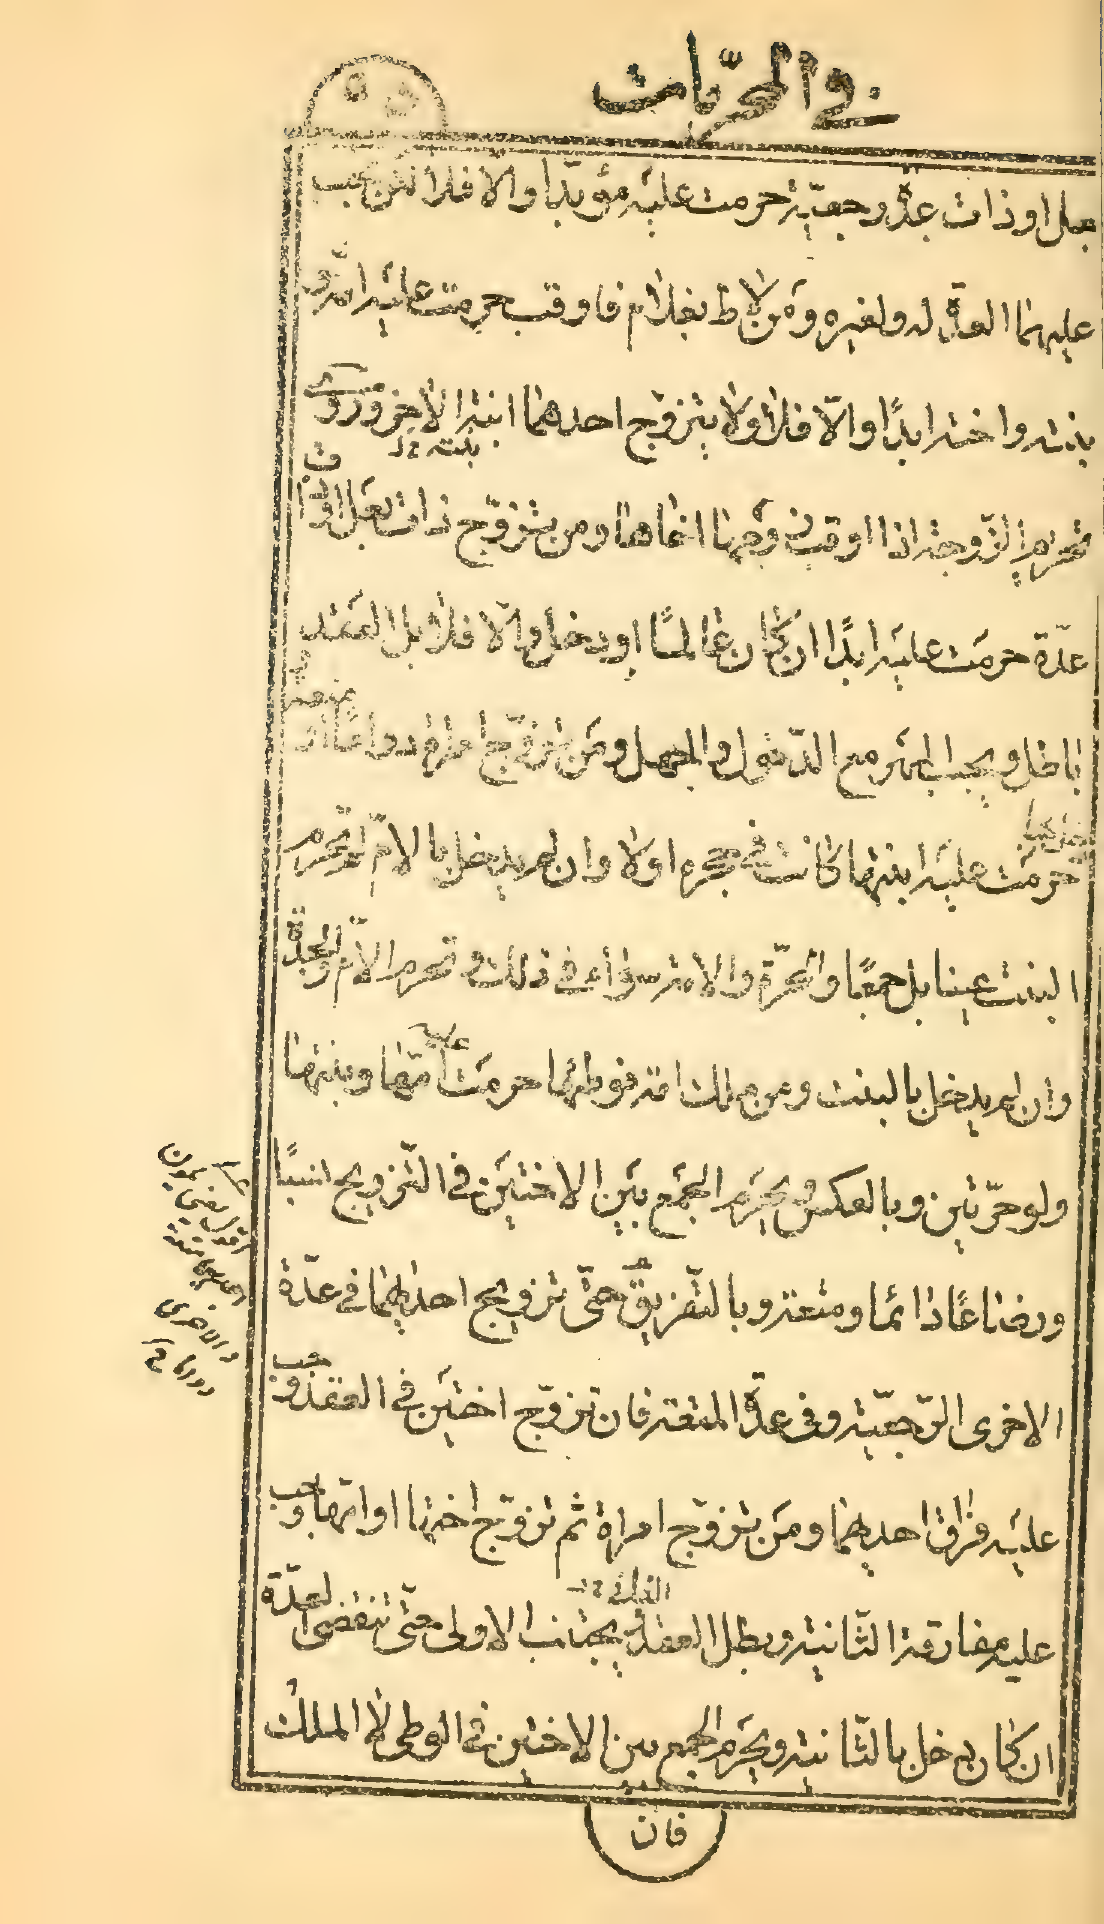 في المحرّمات
بعل او ذات عدّة رجعيّة حرمت عليه مؤبّدا والا فلا نعم يجب
عليهما العدّة له ولغيره ومن لاط بغلام فاوقب حرمت عليه امّه و
بنته واخته ابدًا والّا فلا ولا يتزوج احدهما ابنة الاخر وروي
بنته
تحريم الزّوجة اذا اوقب اخاها ومن يتزوّج ذات بعل او ذات
عدّة حرمت عليه ابدًا ان كان عالمًا او دخل والّا فلا بل العقد
باطل ويجب المهر مع الدّخول والجهل ومن تزوّج امراة دواما او
حرمت عليه ابنتها كانت في حجره او لا وان لم يدخل بالامّ لم تحرم
البنت عينا بل جمعًا والحرّة والامة سواء في ذلك وتحرم الامّ والجدّة
وان لم يدخل بالبنت ومن ملك امة فوطئها حرمت عليه امّها وبنتها
ولو حرّتين وبالعكس ويحرم الجمع بين الاختين في التّزويج نسبًا
ورضاعًا دائما ومتعة وبالتّفريق حتّى تزويج احدهما في عدّة
الاخرى الرّجعيّة وفي عدّة المتعة فان تزوّج اختين في العقد وجب
عليه فراق احديهما ومن يتزوّج امراة ثم تزوّج اختها او امّها وجب
عليه مفارقة الثّانية وبطل العقد يجتنب الاولى حتّى تنقضي العدّة
ان كان دخل بالثّانية ويحرم الجمع بين الاختين في الوطي لا الملك
والاخرى
فان